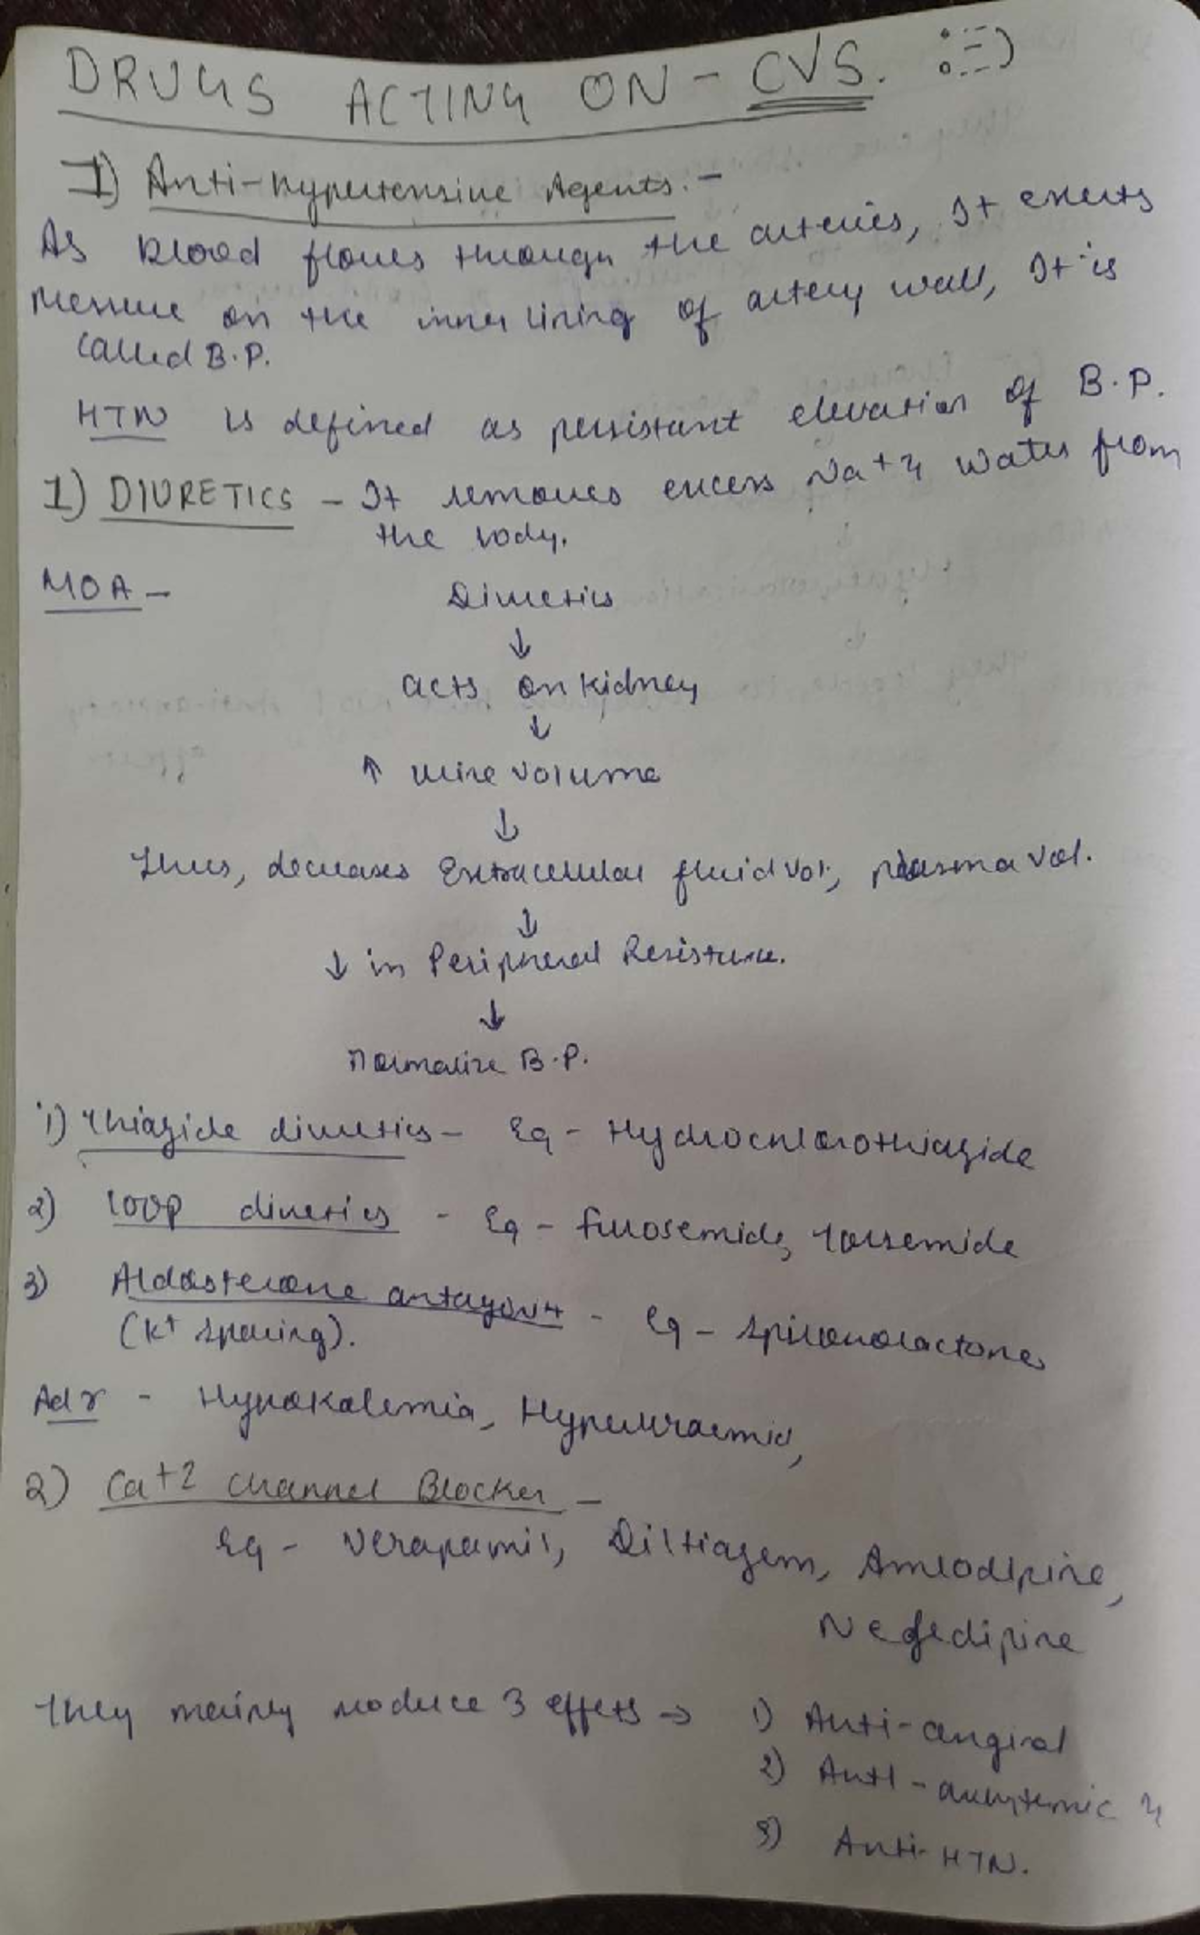 DRUGS ACTING ON - CVS. :=)
I) Anti-hypertensive Agents. -
As blood flows through the arteries, It exerts
pressure on the inner lining of artery wall, It is
called B.P.
HTN is defined as persistant elevation of B.P.
1) DIURETICS - It removes excess Na+ & water from
the body.
MOA -
Diuretics
↓
acts on kidney
↓
↑ urine volume
↓
Thus, decreases Extracellular fluid vol, plasma vol.
↓
↓ in Peripheral Resistance.
↓
Normalize B.P.
1) Thiazide diuretics - Eg - Hydrochlorothiazide
2) loop diuretics - Eg - furosemide, torsemide
3) Aldosterone antagonist - Eg - spironolactone
(K+ sparing).
Adr - Hypokalemia, Hyperuraemia,
2) Ca+2 channel Blocker -
Eg - Verapamil, Diltiazem, Amlodipine,
Nefedipine
They mainly produce 3 effects → 1) Anti-anginal
2) Anti-arrhytemic &
3) Anti-HTN.